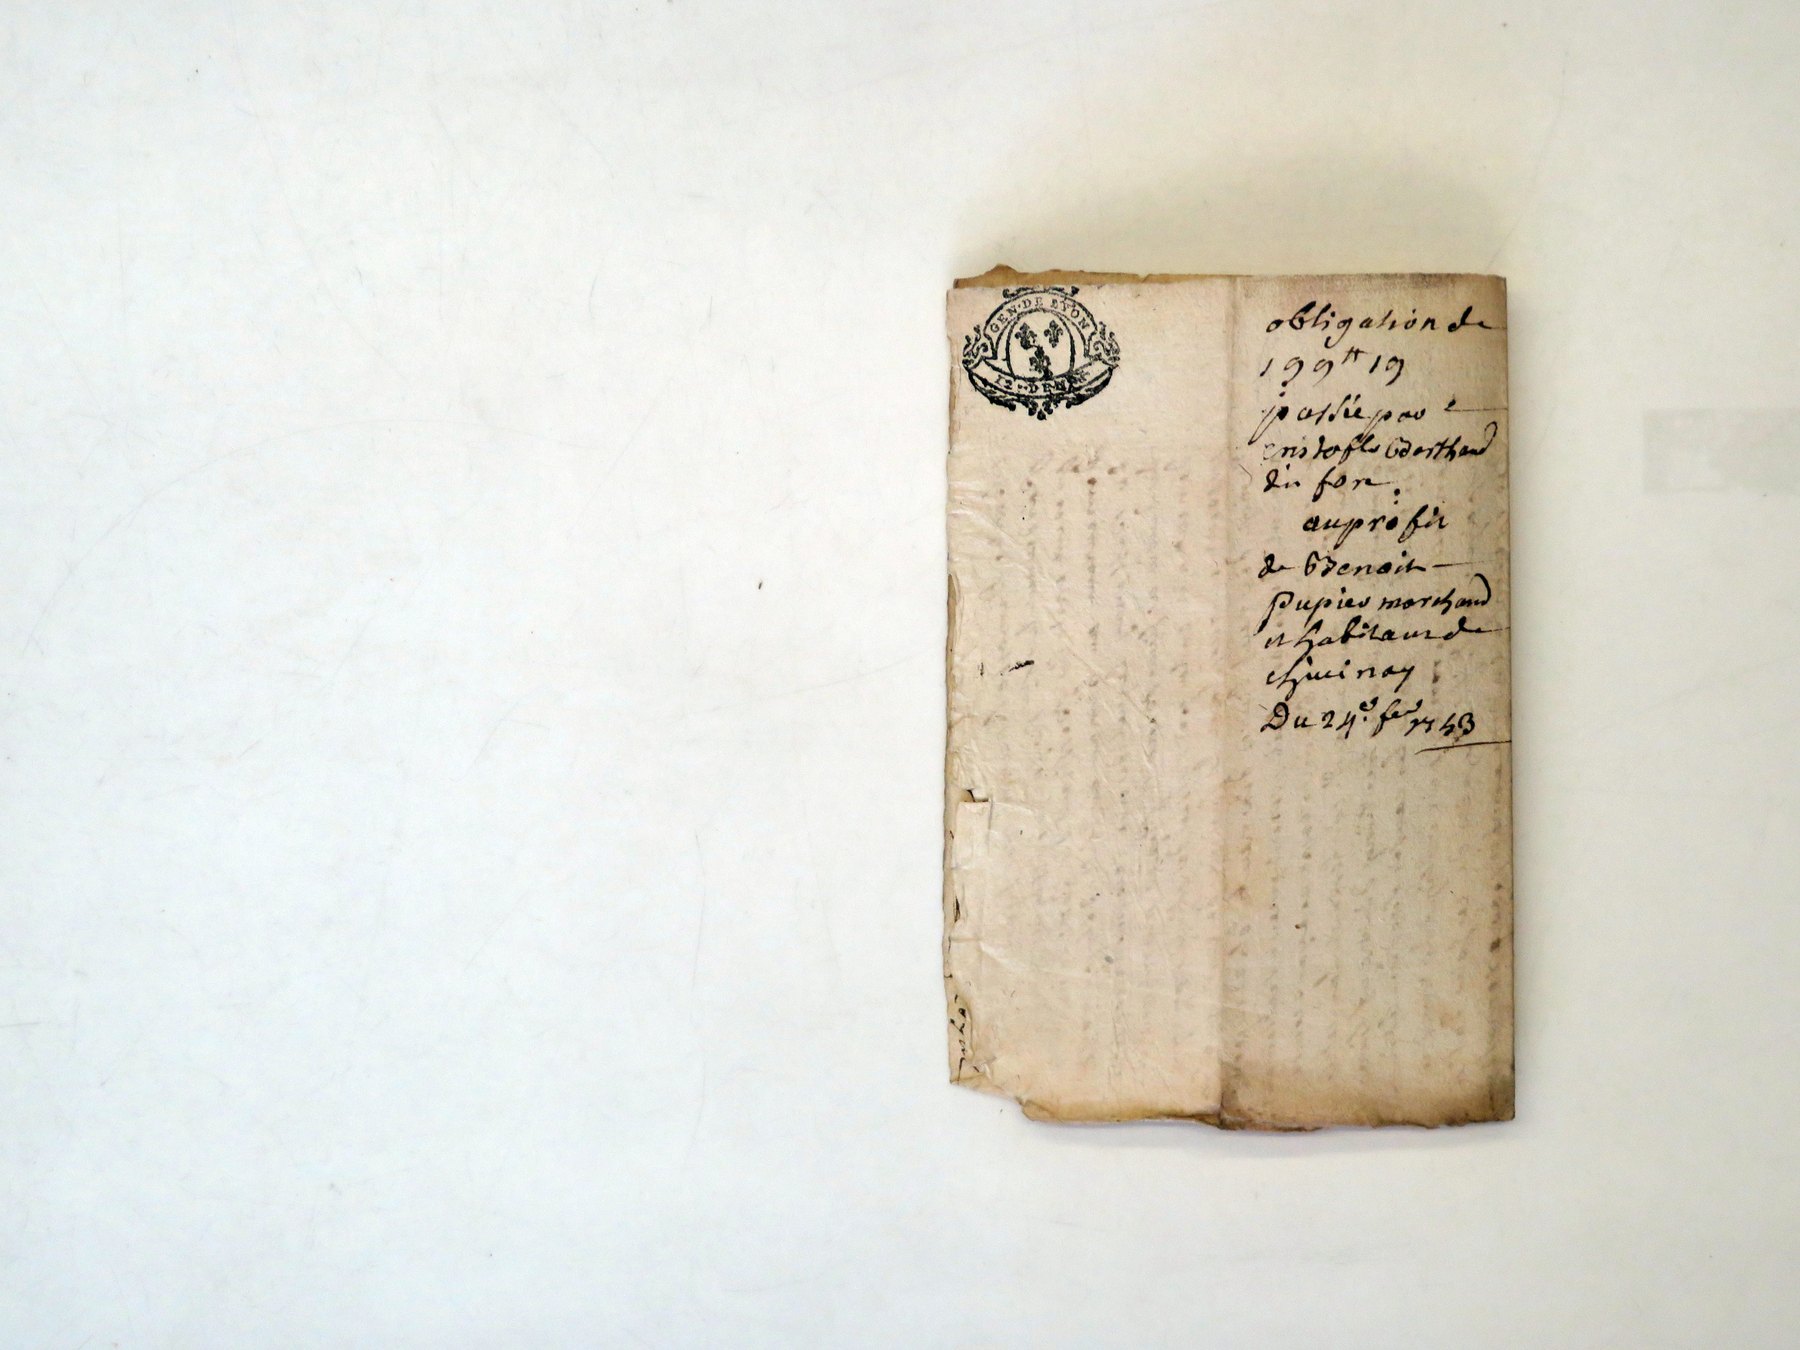 GEN·DE LYON
12·DEN
obligation de
199 tt 19
passée par
cristofle Berthaud
du fore
au profit
de Benoit
Pupier marchand
et habitant de
chuinay
Du 24e fer 1743